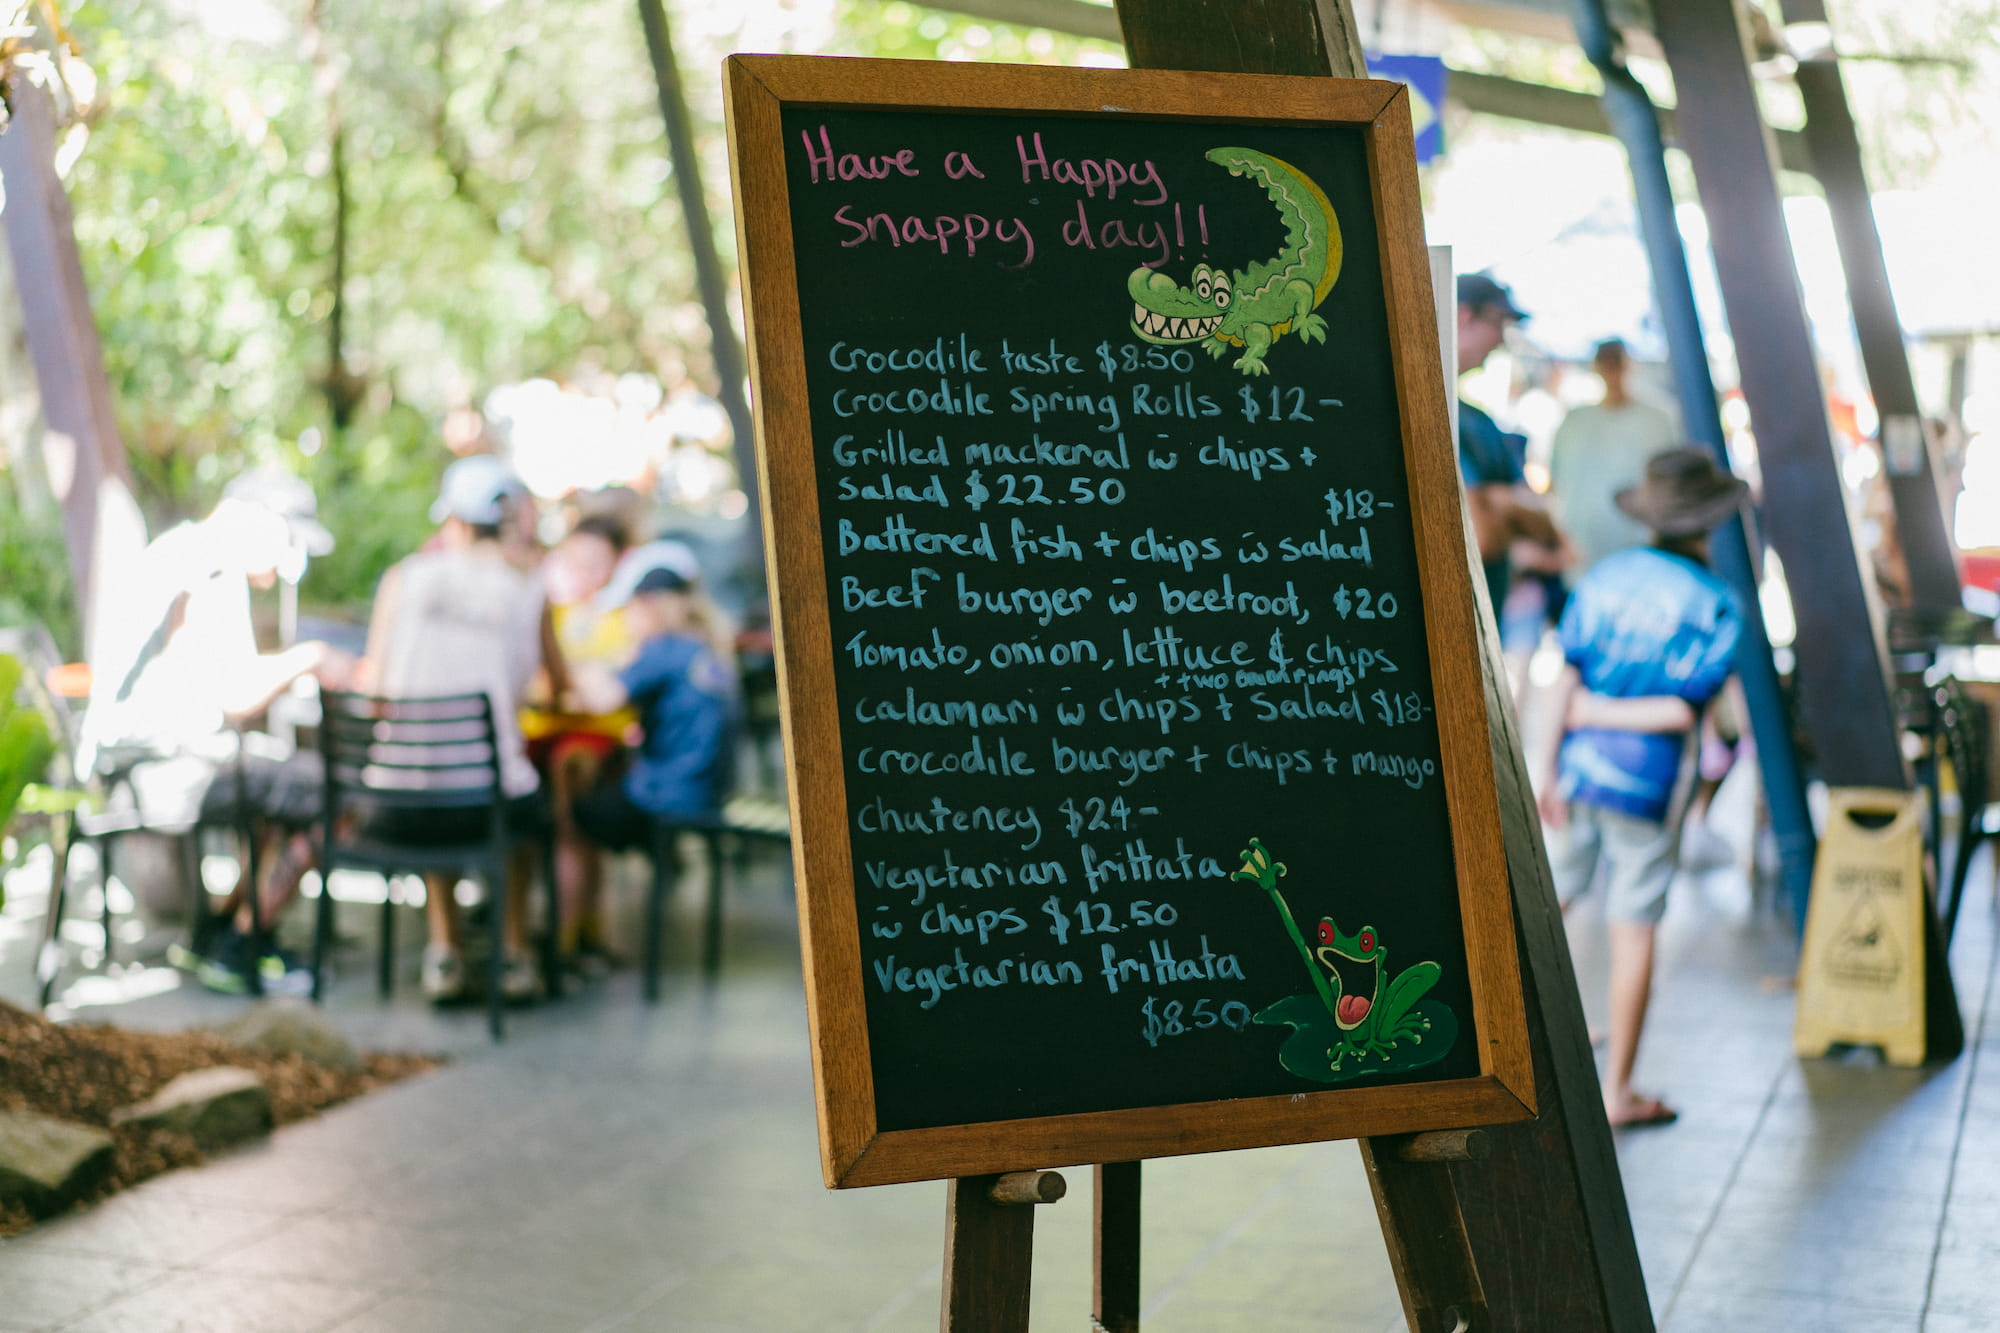 Have a Happy
Snappy day!!
Crocodile taste $8.50
Crocodile Spring Rolls $12-
Grilled mackeral w̄ chips +
Salad $22.50
$18-
Battered fish + chips w̄ salad
Beef burger w̄ beetroot, $20
Tomato, onion, lettuce & chips
+ two onion rings
Calamari w̄ chips + Salad $18-
Crocodile burger + chips + mango
Chuteney $24-
Vegetarian frittata
w̄ chips $12.50
Vegetarian frittata
$8.50